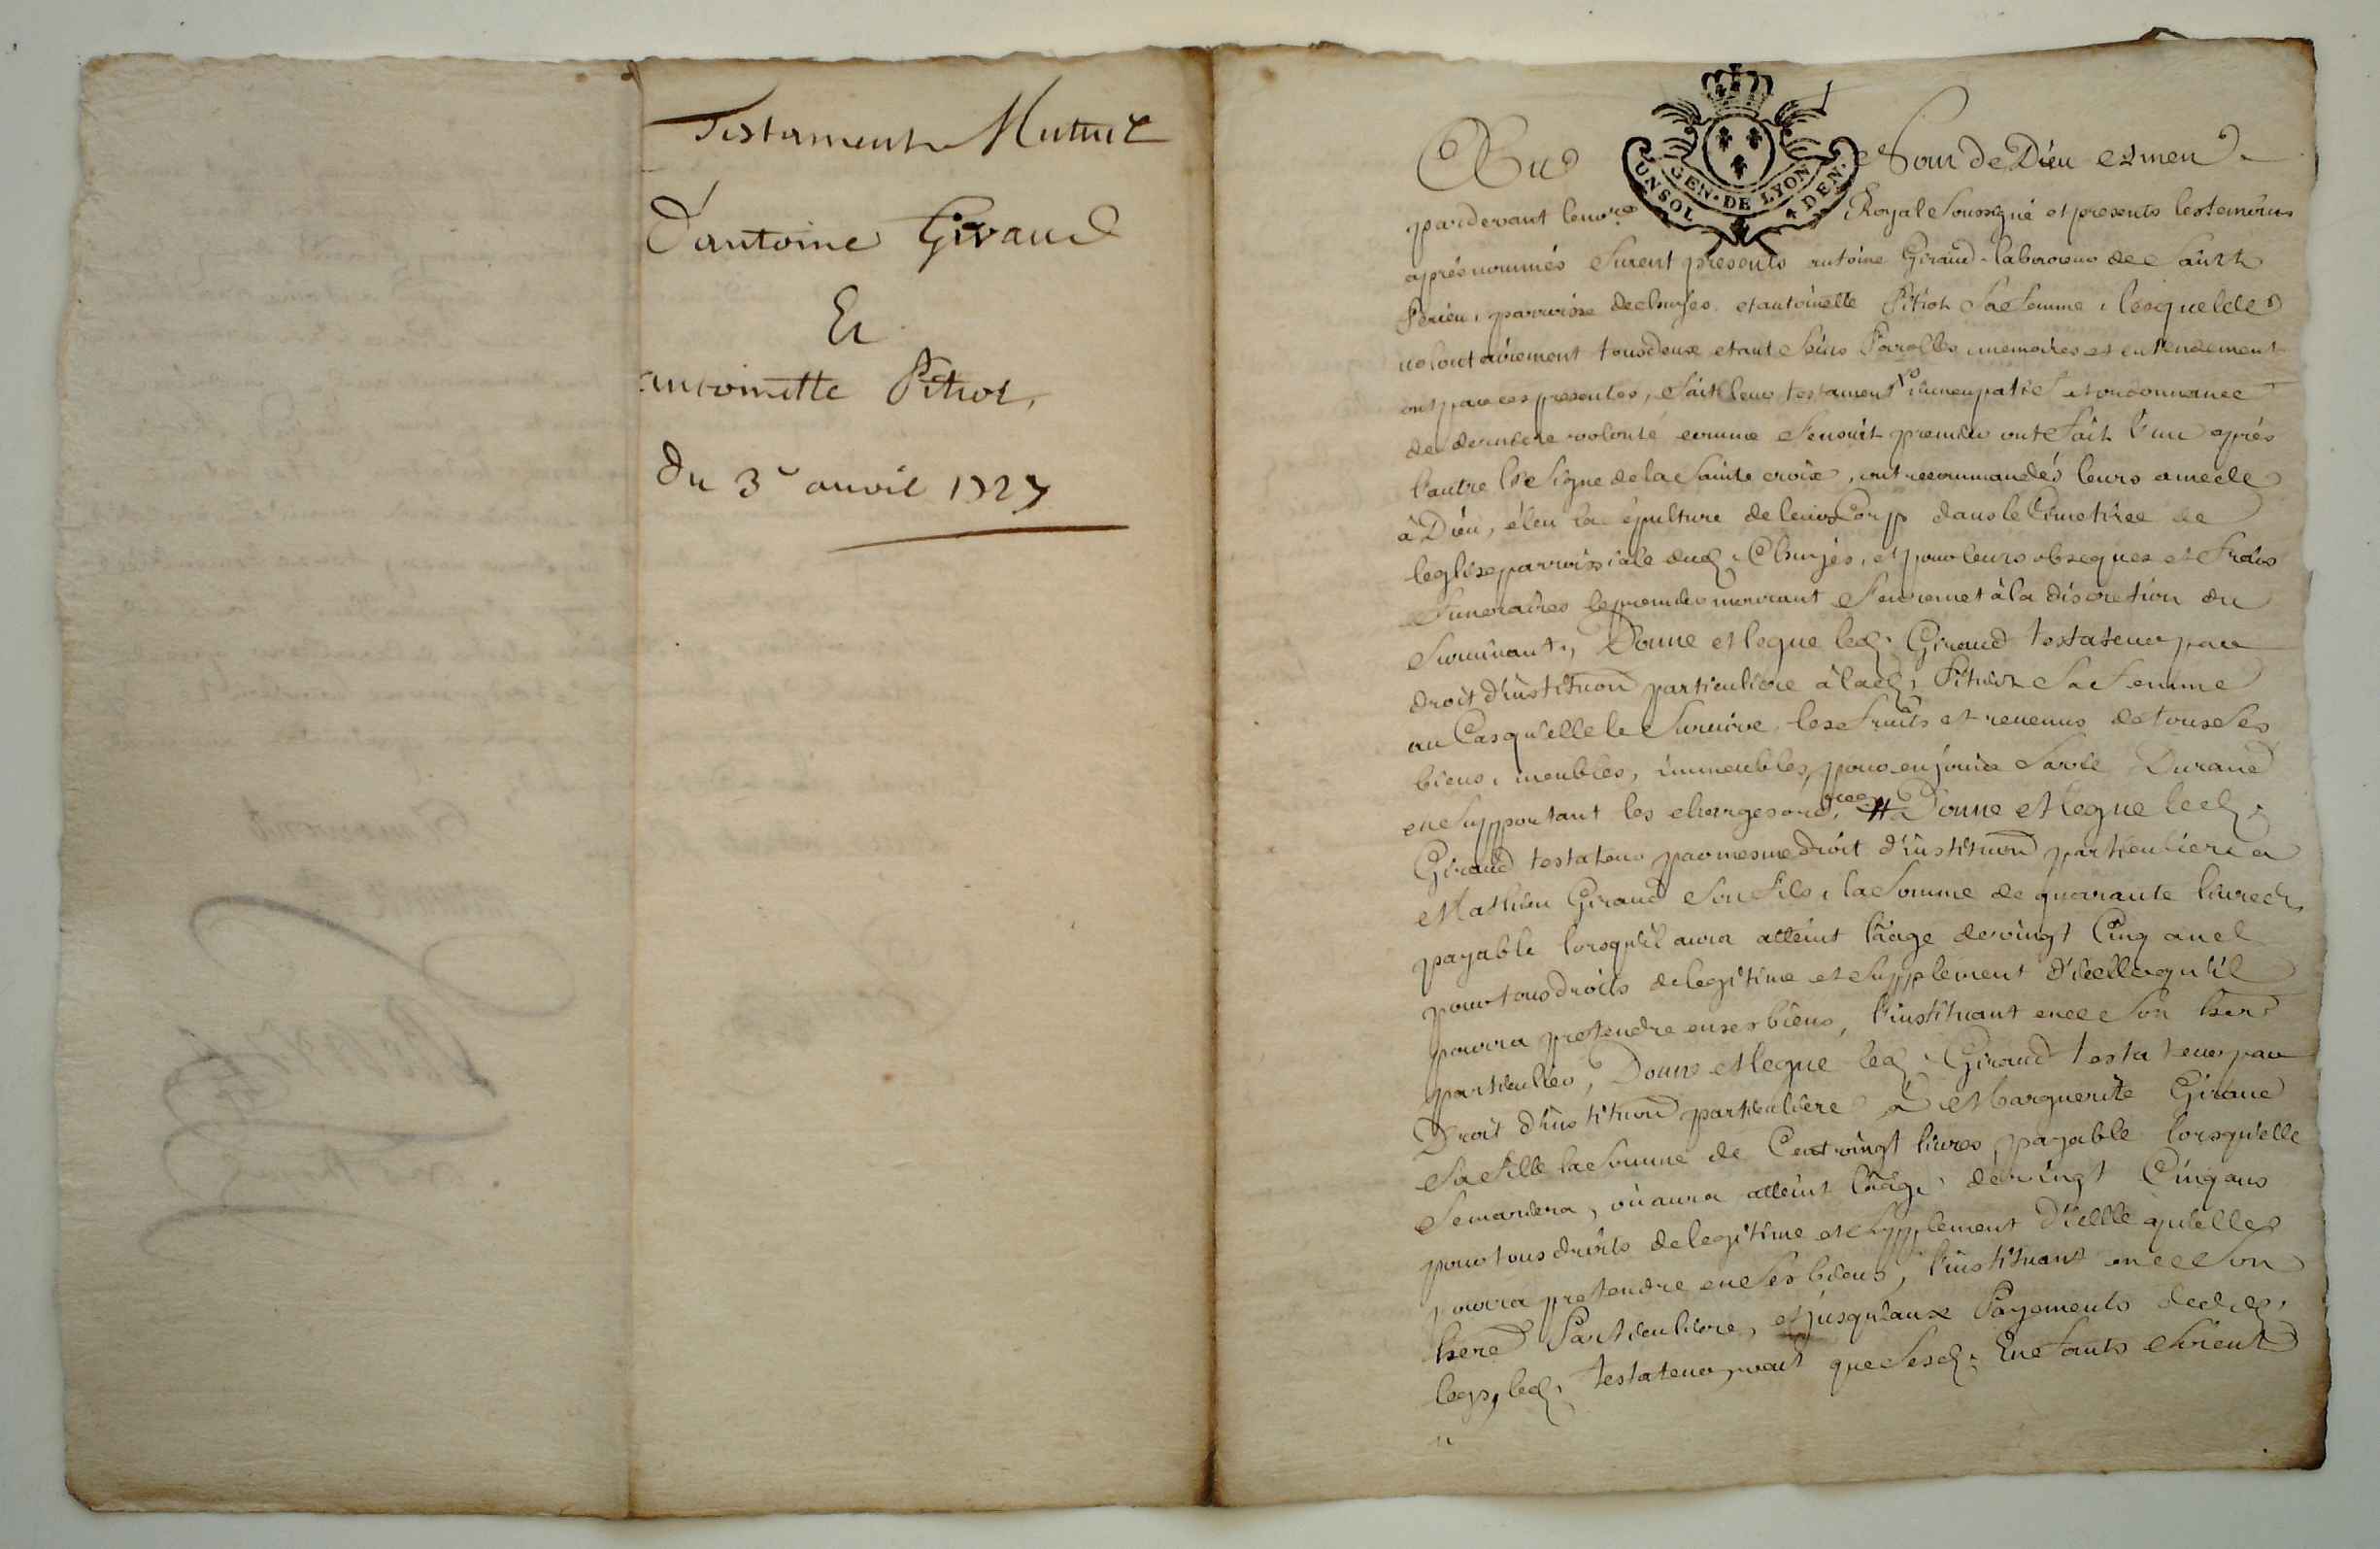 Testament Mutuel
D'antoine Giraud
Et
antoinette Pitiot,
Du 3e auril 1727
Au Nom de Dieu Amen
GEN·DE LYON
UN SOL 4 DEN.
pardevant le no.re Royal Soussigné et presents les temoins
aprés nommés furent presents antoine Giraud laboureur de Saint
Périeu, parroisse de et antoinette Pitiot Sa femme, lesquelles
volontairement tous deux etant Sains Parolles, memoires et entendement
ont par ces presentes, fait leur testament nuncupatif et ordonnance
de derniere volonté comme s'ensuit premier ont fait l'un aprés
l'autre le Signe de la Sainte croix, ont recommandés leurs ame
à Dieu, éleu la Sepulture de leurs Corp dans le Cimetiere de
leglise parroissiale dud. et pour leurs obseques et frais
funeraires le premier mourant S'en remet à la discretion du
Suruiuant, Donne et legue led. Giraud testateur par
droit d'institution particuliere à lad. Pitiot Sa femme
au Cas qu'elle le Suruiue les fruits et reuenus de tous Ses
biens, meubles, immeubles, pour en jouir Sa vie Durand
en Supportant les charges ord.res Donne et legue led.
Giraud testateur par mesme droit d'institution particuliere a
Mathieu Giraud Son fils, la Somme de quarante liures,
payable lorsqu'il aura atteint l'âage de vingt Cinq ans
pour tous droits de legitime et Supplement d'icelle qu'il
pourra pretendre en ses biens, l'instituant en ce Son her.
particulier, Donne et legue led. Giraud testateur par
Droit d'institution particuliere à Marguerite Giraud
Sa fille la Somme de Cent vingt liures, payable lorsqu'elle
Se mariera, ou aura atteint l'âage de vingt Cinq ans
pour tous droits de legitime et Supplement d'icelle qu'elle
pourra pretendre en Ses biens, l'instituant en ce Son
here Particuliere, et jusqu'aux Payements desd.
legs, led. testateur veut que Sesd. Enfants Soient